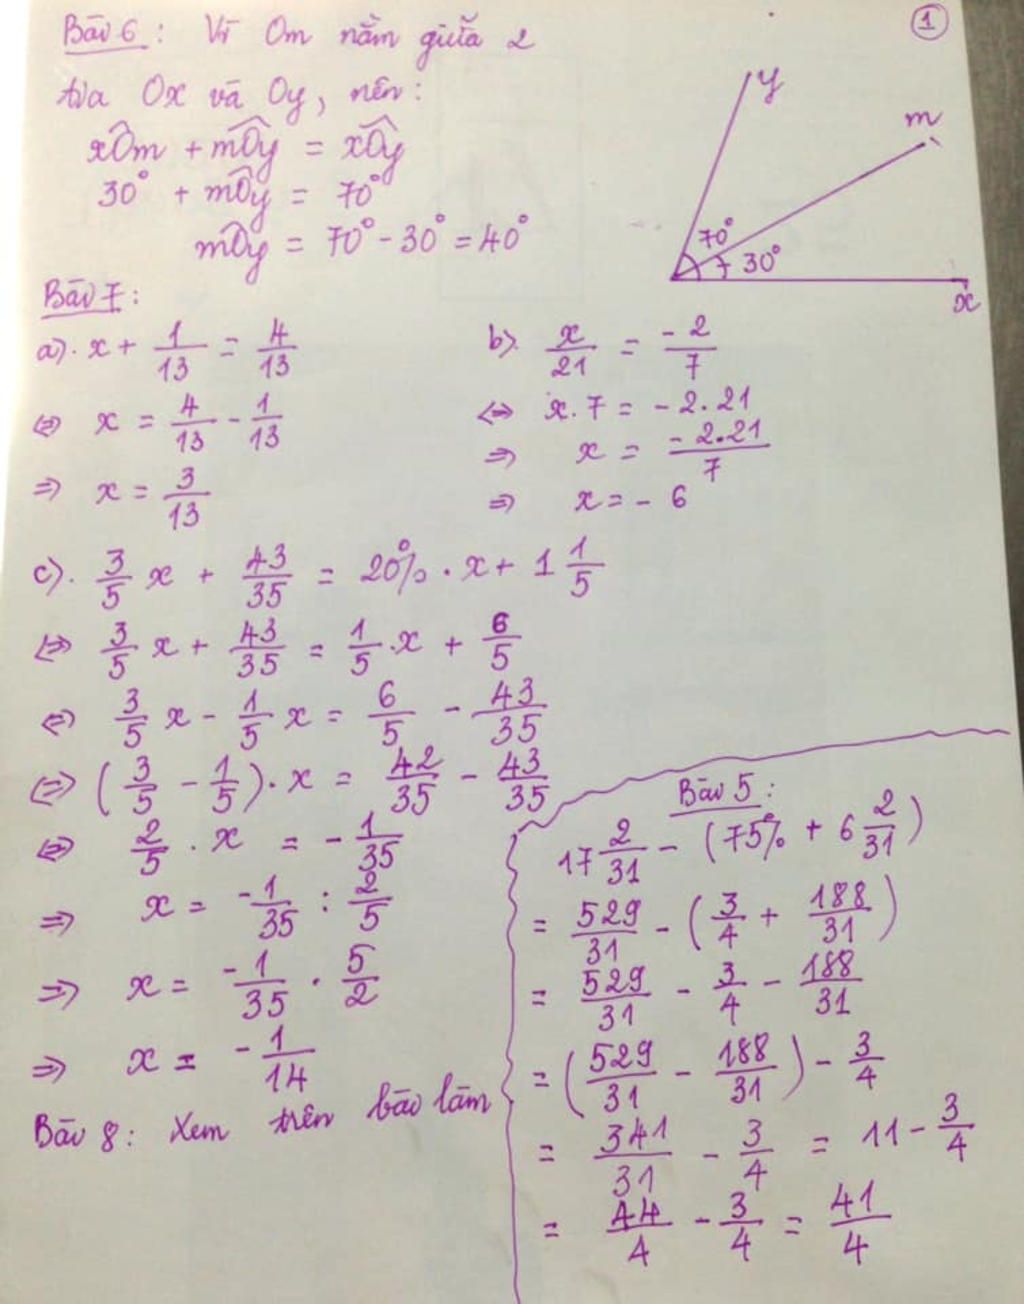 ①
Bài 6 : Vì Om nằm giữa 2
tia Ox và Oy, nên :
xÔm + mÔy = xÔy
30° + mÔy = 70°
mÔy = 70° - 30° = 40°
y
m
70°
30°
x
Bài 7 :
a). x + 1/13 = 4/13
⇔ x = 4/13 - 1/13
⇒ x = 3/13
b). x/21 = -2/7
⇔ x . 7 = - 2 . 21
⇒ x = -2.21/7
⇒ x = - 6
c). 3/5 x + 43/35 = 20% . x + 1 1/5
⇔ 3/5 x + 43/35 = 1/5 . x + 6/5
⇔ 3/5 x - 1/5 x = 6/5 - 43/35
⇔ (3/5 - 1/5) . x = 42/35 - 43/35
⇔ 2/5 . x = - 1/35
⇒ x = -1/35 : 2/5
⇒ x = -1/35 . 5/2
⇒ x = -1/14
Bài 8 : Xem trên bài làm
Bài 5 :
17 2/31 - (75% + 6 2/31)
= 529/31 - (3/4 + 188/31)
= 529/31 - 3/4 - 188/31
= (529/31 - 188/31) - 3/4
= 341/31 - 3/4 = 11 - 3/4
= 44/4 - 3/4 = 41/4